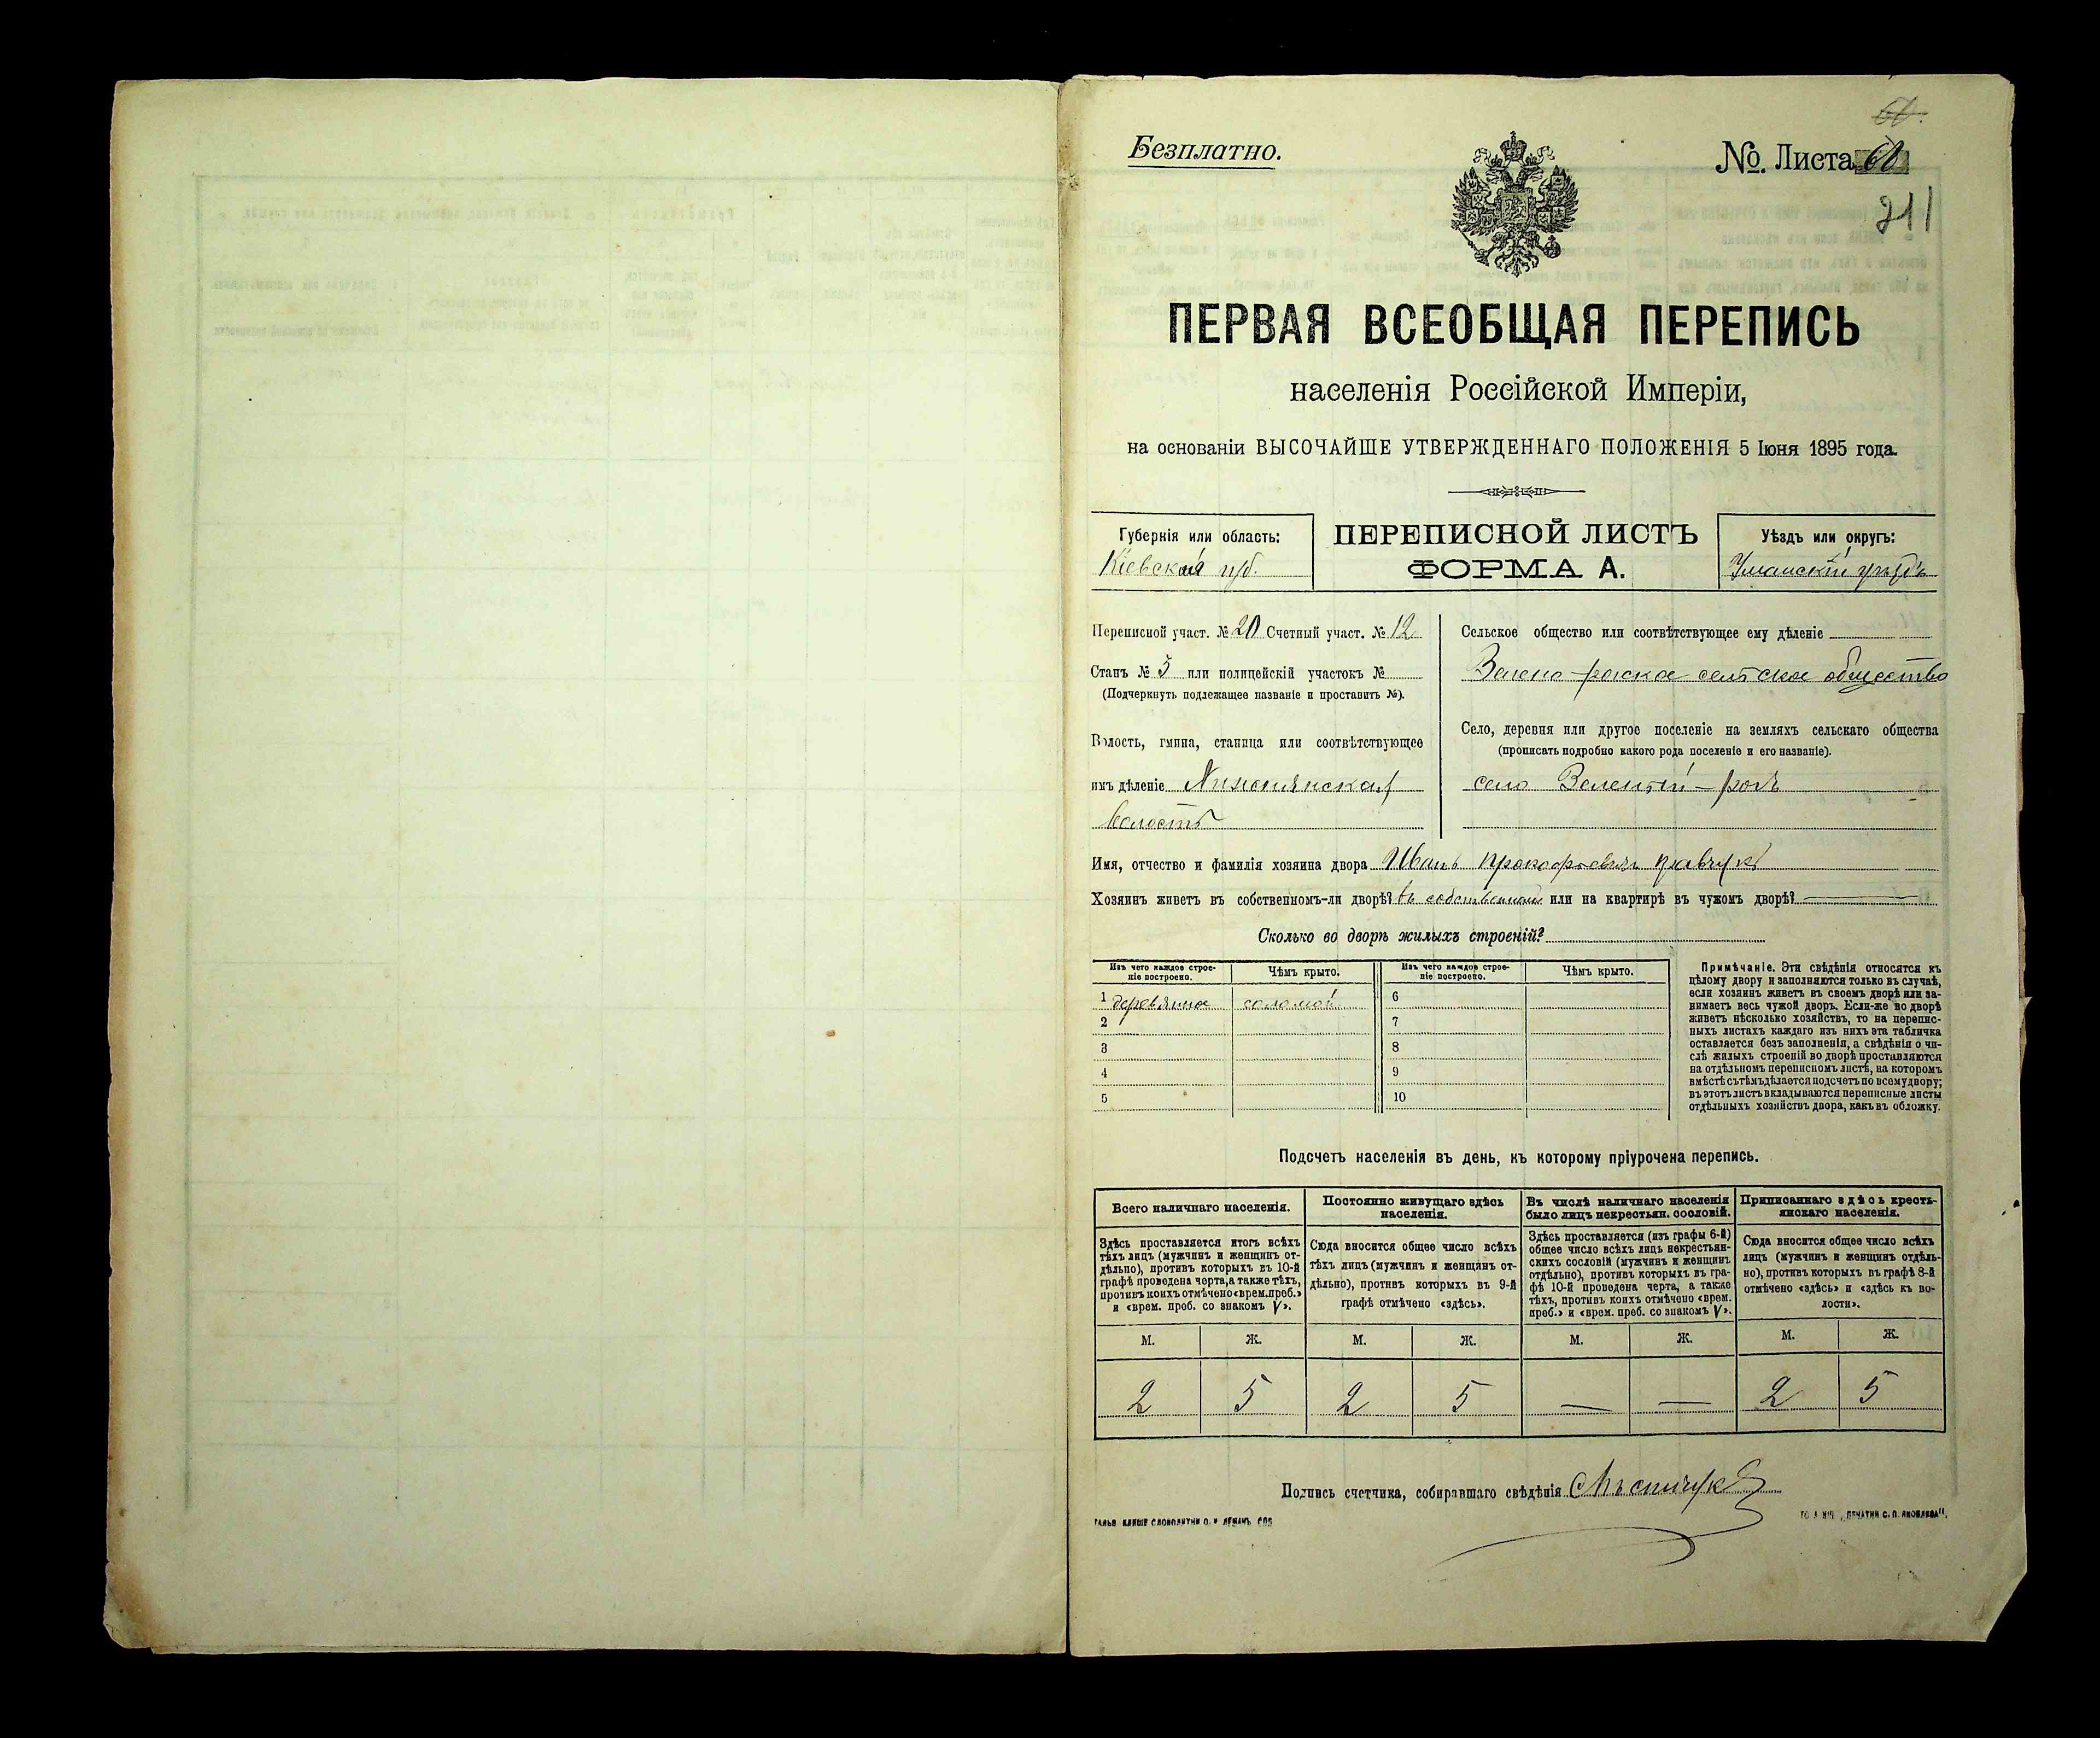 Безплатно.
№. Листа 60
211
ПЕРВАЯ ВСЕОБЩАЯ ПЕРЕПИСЬ
населенія Россійской Имперіи,
на основаніи ВЫСОЧАЙШЕ УТВЕРЖДЕННАГО ПОЛОЖЕНІЯ 5 Іюня 1895 года.
Губернія или область:
Кіевская губ.
ПЕРЕПИСНОЙ ЛИСТЪ
ФОРМА А.
Уѣздъ или округъ:
Уманскій уѣздъ
Переписной участ. № 20 Счетный участ. № 12
Станъ № 3 или полицейскій участокъ №
(Подчеркнуть подлежащее названіе и проставить №).
Волость, гмина, станица или соотвѣтствующее
имъ дѣленіе
волость
Сельское общество или соотвѣтствующее ему дѣленіе
Зелено-рогское сельское общество
Село, деревня или другое поселеніе на земляхъ сельскаго общества
(прописать подробно какого рода поселеніе и его названіе).
село Зеленый-рогъ
Имя, отчество и фамилія хозяина двора Иванъ Прокофьевичъ
Хозяинъ живетъ въ собственномъ-ли дворѣ? въ собственномъ или на квартирѣ въ чужомъ дворѣ? —
Сколько во дворѣ жилыхъ строеній?
Изъ чего каждое строе-
ніе построено.
Чѣмъ крыто.
Изъ чего каждое строе-
ніе построено.
Чѣмъ крыто.
1 деревянное соломой 6
2 7
3 8
4 9
5 10
Примѣчаніе. Эти свѣдѣнія относятся къ
цѣлому двору и заполняются только въ случаѣ,
если хозяинъ живетъ въ своемъ дворѣ или за-
нимаетъ весь чужой дворъ. Если-же во дворѣ
живетъ нѣсколько хозяйствъ, то на перепис-
ныхъ листахъ каждаго изъ нихъ эта табличка
оставляется безъ заполненія, а свѣдѣнія о чи-
слѣ жилыхъ строеній во дворѣ проставляются
на отдѣльномъ переписномъ листѣ, на которомъ
вмѣстѣ съ тѣмъ дѣлается подсчетъ по всему двору;
въ этотъ листъ вкладываются переписные листы
отдѣльныхъ хозяйствъ двора, какъ въ обложку.
Подсчетъ населенія въ день, къ которому пріурочена перепись.
Всего наличнаго населенія.
Постоянно живущаго здѣсь
населенія.
Въ числѣ наличнаго населенія
было лицъ некрестьян. сословій.
Приписаннаго здѣсь кресть-
янскаго населенія.
Здѣсь проставляется итогъ всѣхъ
тѣхъ лицъ (мужчинъ и женщинъ от-
дѣльно), противъ которыхъ въ 10-й
графѣ проведена черта, а также тѣхъ,
противъ коихъ отмѣчено «врем. преб.»
и «врем. преб. со знакомъ V».
Сюда вносится общее число всѣхъ
тѣхъ лицъ (мужчинъ и женщинъ от-
дѣльно), противъ которыхъ въ 9-й
графѣ отмѣчено «здѣсь».
Здѣсь проставляется (изъ графы 6-й)
общее число всѣхъ лицъ некрестьян-
скихъ сословій (мужчинъ и женщинъ
отдѣльно), противъ которыхъ въ гра-
фѣ 10-й проведена черта, а также
тѣхъ, противъ коихъ отмѣчено «врем.
преб.» и «врем. преб. со знакомъ V».
Сюда вносится общее число всѣхъ
лицъ (мужчинъ и женщинъ отдѣль-
но), противъ которыхъ въ графѣ 8-й
отмѣчено «здѣсь» и «здѣсь къ во-
лости».
М. Ж. М. Ж. М. Ж. М. Ж.
2 5 2 5 — — 2 5
Подпись счетчика, собиравшаго свѣдѣнія